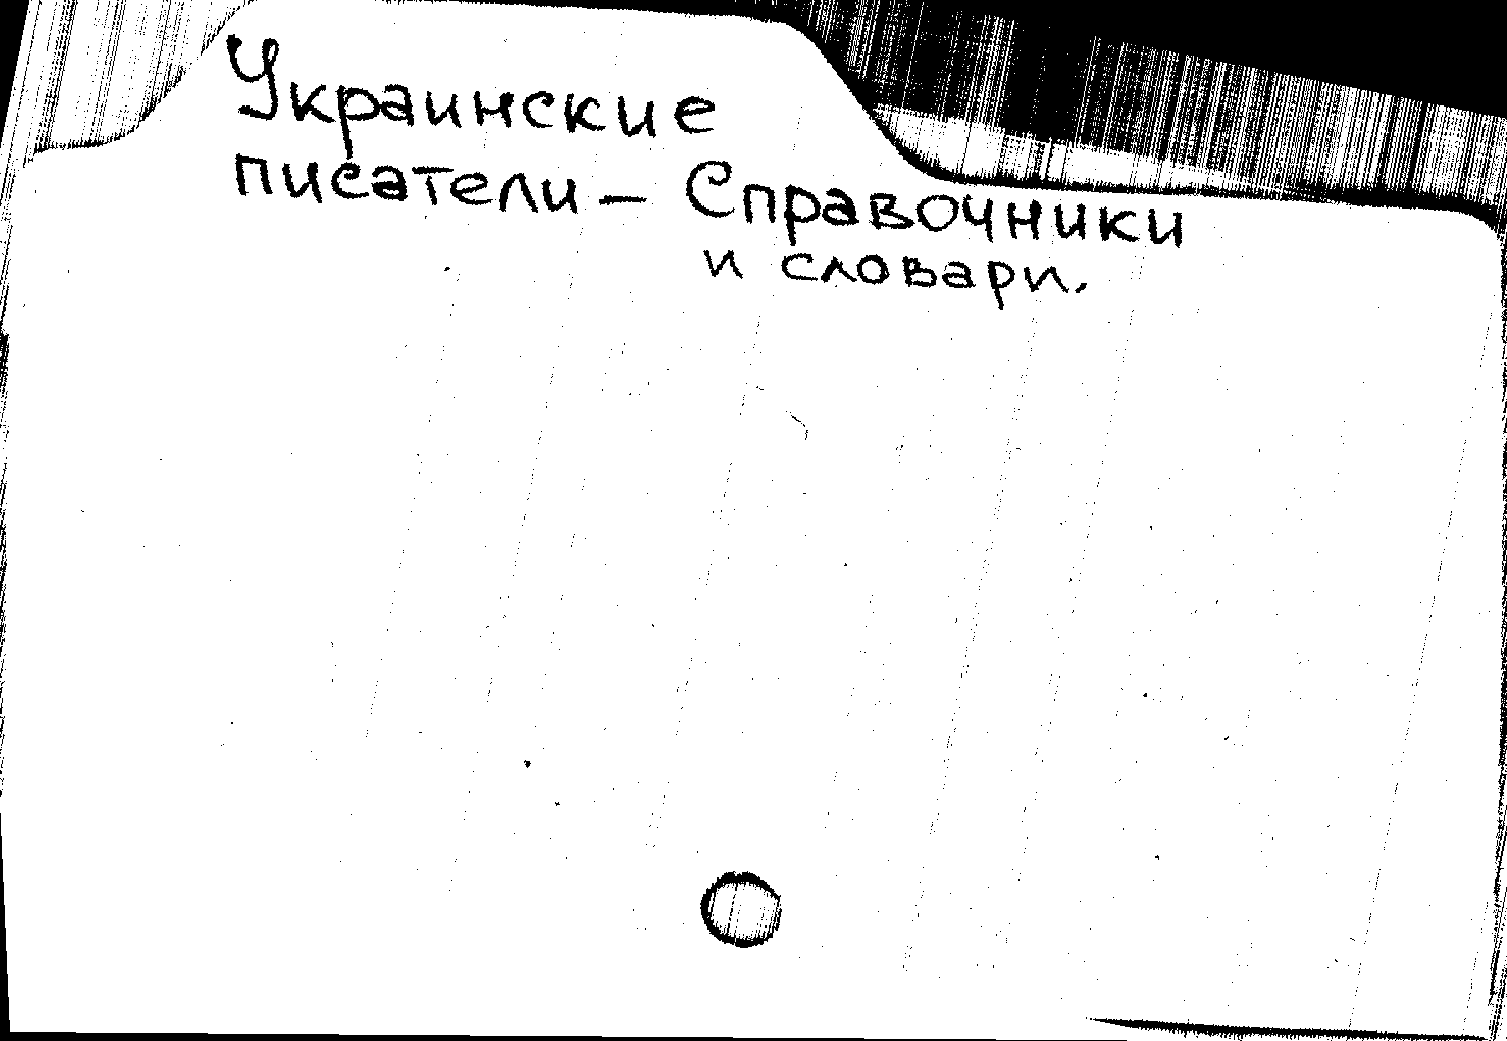 Украинские
писатели – Справочники
и словари.